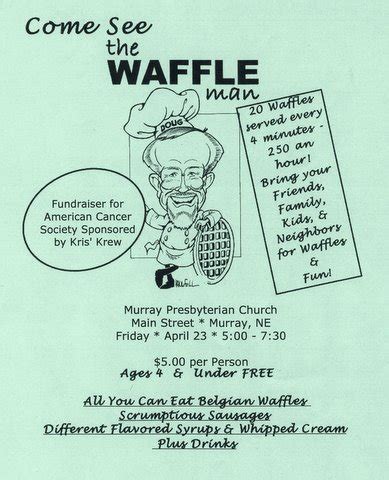 Come See
the
WAFFLE
man
DOUG
20 Waffles
served every
4 minutes -
250 an
hour!
Bring your
Friends,
Family,
Kids, &
Neighbors
for Waffles
&
Fun!
Fundraiser for
American Cancer
Society Sponsored
by Kris' Krew
Murray Presbyterian Church
Main Street * Murray, NE
Friday * April 23 * 5:00 - 7:30
$5.00 per Person
Ages 4 & Under FREE
All You Can Eat Belgian Waffles
Scrumptious Sausages
Different Flavored Syrups & Whipped Cream
Plus Drinks